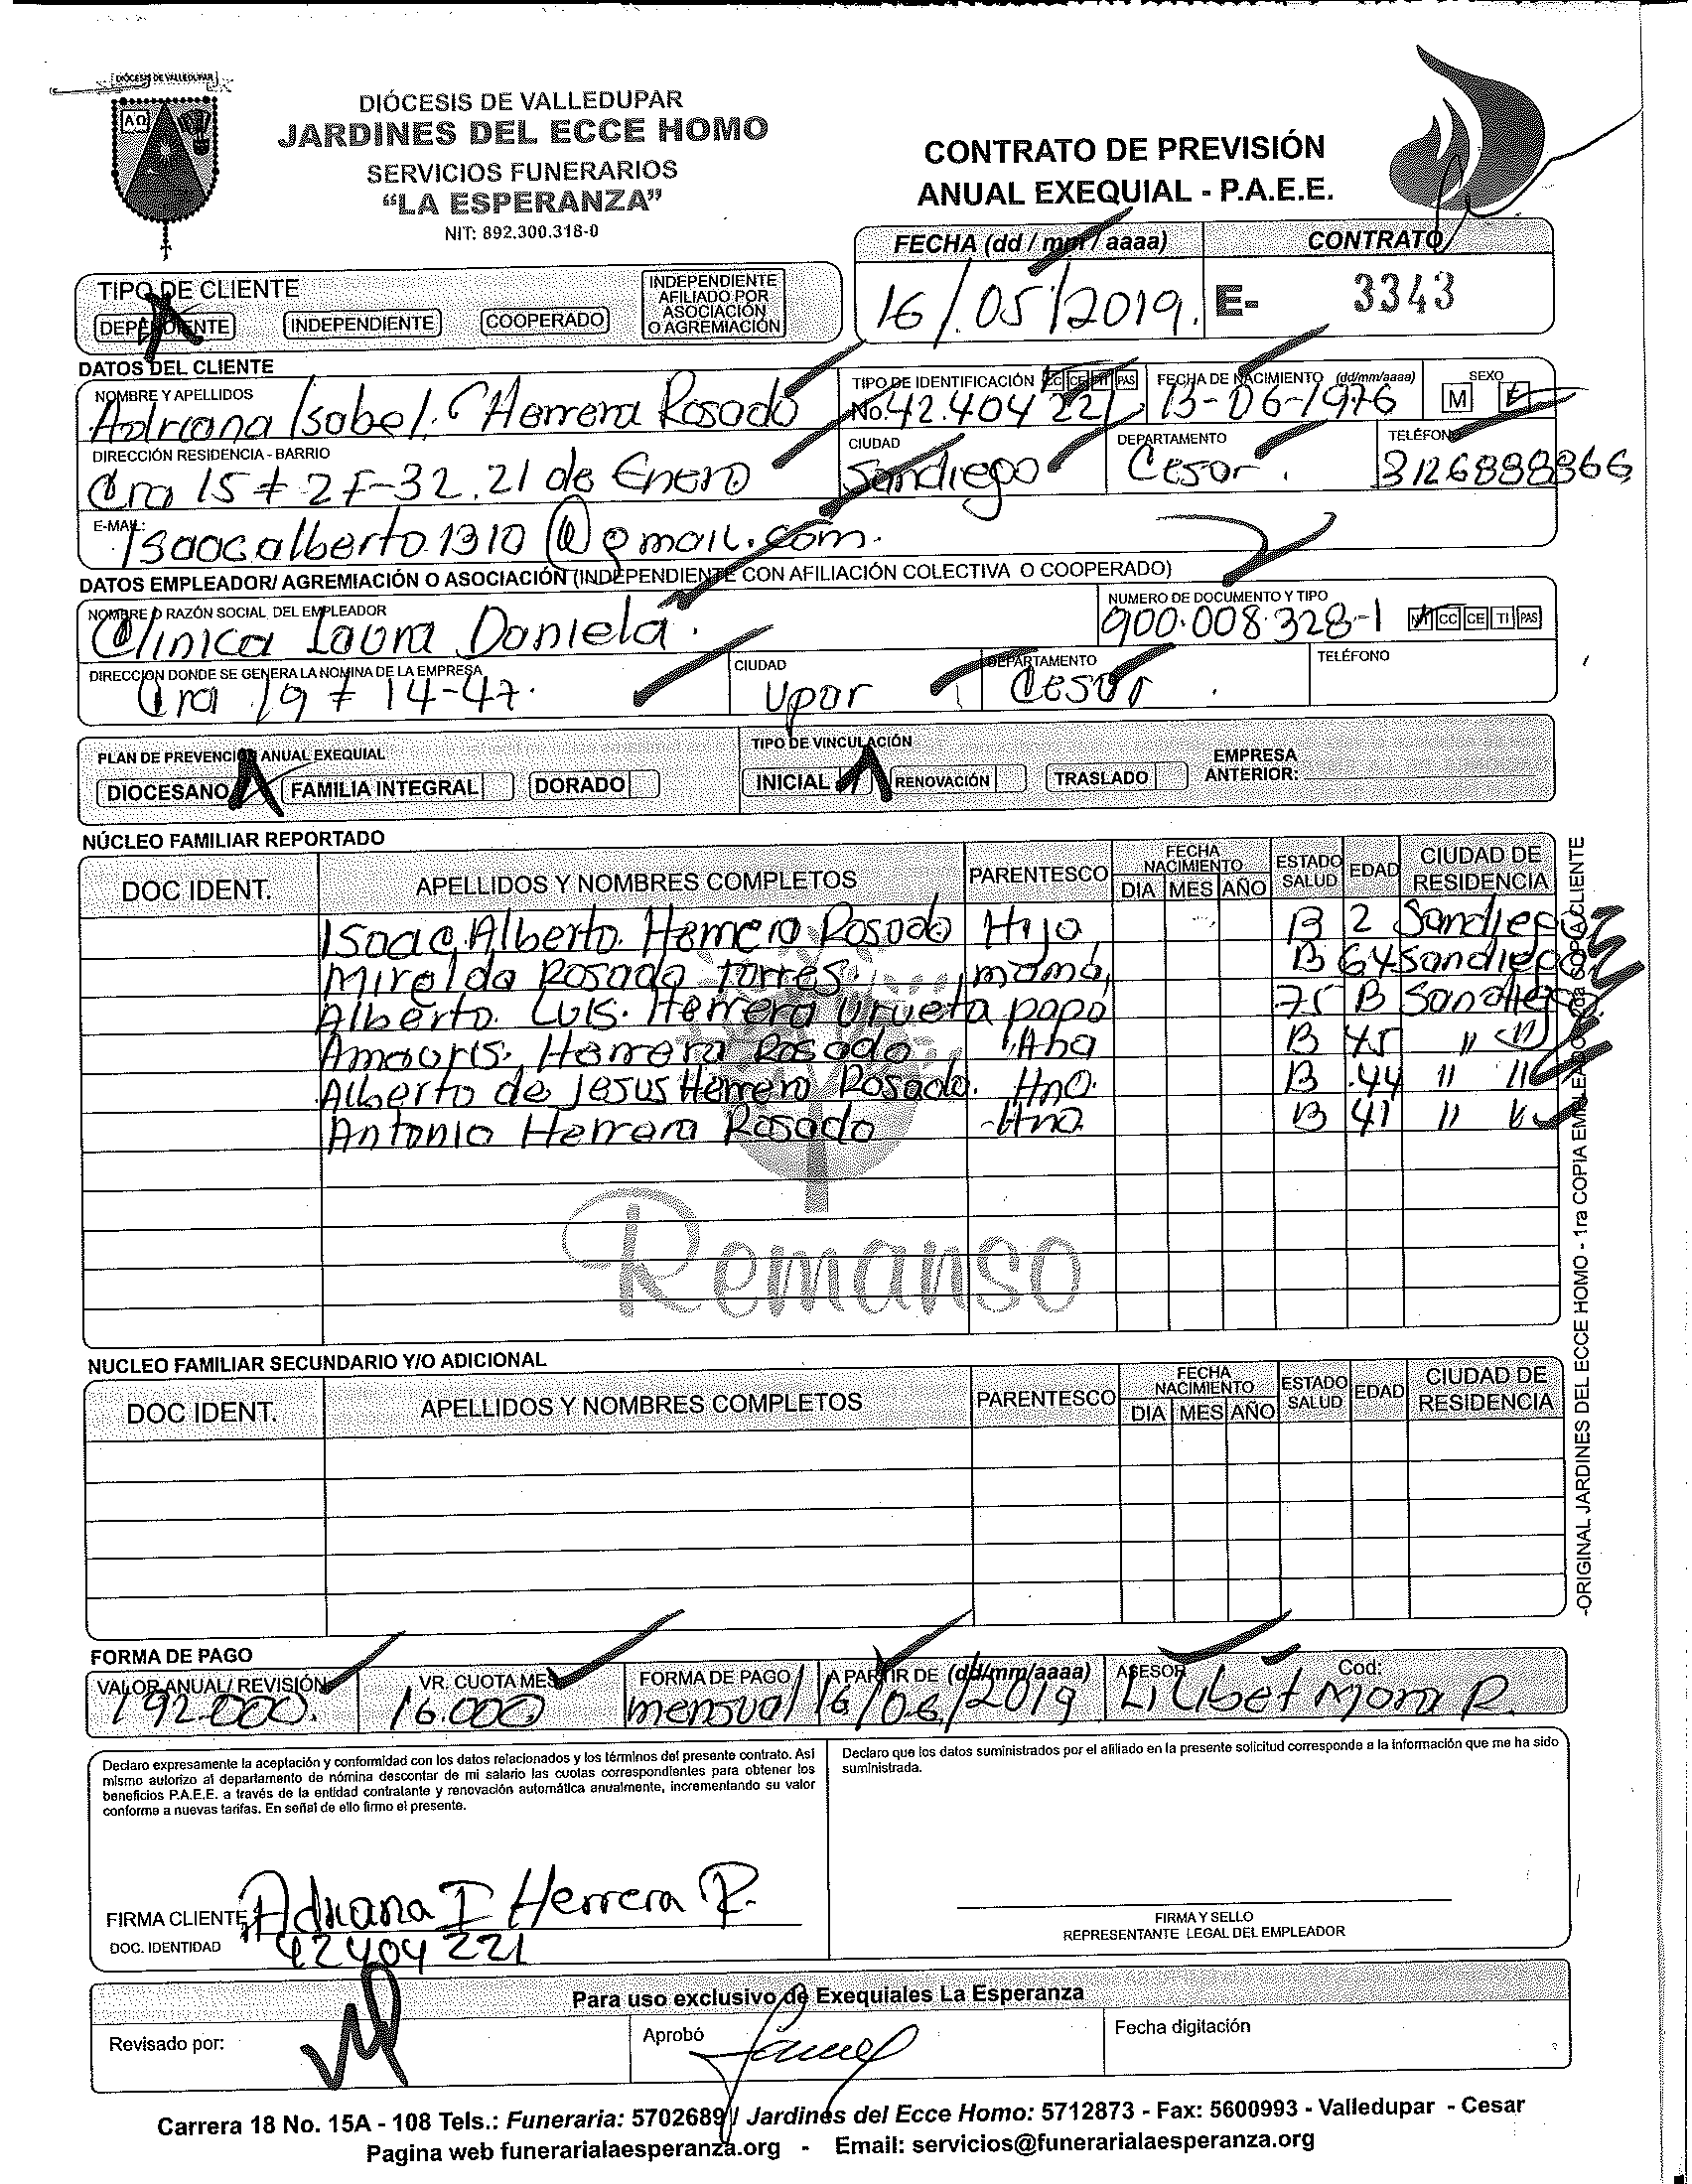 DIÓCESIS DE VALLEDUPAR
ΑΩ
DIÓCESIS DE VALLEDUPAR
JARDINES DEL ECCE HOMO
SERVICIOS FUNERARIOS
“LA ESPERANZA”
NIT: 892.300.318-0
CONTRATO DE PREVISIÓN
ANUAL EXEQUIAL - P.A.E.E.
FECHA (dd / mm / aaaa) CONTRATO
16/05/2019. E- 3343
TIPO DE CLIENTE
DEPENDIENTE INDEPENDIENTE COOPERADO INDEPENDIENTE AFILIADO POR ASOCIACIÓN O AGREMIACIÓN
DATOS DEL CLIENTE
NOMBRE Y APELLIDOS TIPO DE IDENTIFICACIÓN CC CE TI PAS FECHA DE NACIMIENTO (dd/mm/aaaa) SEXO
Adriana Isabel. Herrera Rosado No. 42.404 221 13-06-1976 M F
DIRECCIÓN RESIDENCIA - BARRIO CIUDAD DEPARTAMENTO TELÉFONO
Cra 15 # 2F-32. 21 de Enero Sandiego Cesar. 3126888866
E-MAIL:
Isaacalberto1310@gmail.com.
DATOS EMPLEADOR/ AGREMIACIÓN O ASOCIACIÓN (INDEPENDIENTE CON AFILIACIÓN COLECTIVA O COOPERADO)
NOMBRE O RAZÓN SOCIAL DEL EMPLEADOR NUMERO DE DOCUMENTO Y TIPO
Clinica Laura Daniela. 900.008.328-1 NIT CC CE TI PAS
DIRECCIÓN DONDE SE GENERA LA NOMINA DE LA EMPRESA CIUDAD DEPARTAMENTO TELÉFONO
Cra 19 # 14-47. Upar Cesar.
PLAN DE PREVENCIÓN ANUAL EXEQUIAL TIPO DE VINCULACIÓN
DIOCESANO FAMILIA INTEGRAL DORADO INICIAL RENOVACIÓN TRASLADO EMPRESA ANTERIOR:
NÚCLEO FAMILIAR REPORTADO
DOC IDENT. APELLIDOS Y NOMBRES COMPLETOS PARENTESCO FECHA NACIMIENTO DIA MES AÑO ESTADO SALUD EDAD CIUDAD DE RESIDENCIA
Isaac Alberto. Herrera Rosado Hijo B 2 Sandiego
Mirelda Rosado Torres. mamá B 64 Sandiego
Alberto. Luis. Herrera Urueta papa 75 B Sandiego.
Amauris. Herrera Rosado B 45 "
Alberto de Jesus Herrera Rosado. Hno. B 44 " "
Antonio Herrera Rosado Hno. B 41 "
Remanso
NUCLEO FAMILIAR SECUNDARIO Y/O ADICIONAL
DOC IDENT. APELLIDOS Y NOMBRES COMPLETOS PARENTESCO FECHA NACIMIENTO DIA MES AÑO ESTADO SALUD EDAD CIUDAD DE RESIDENCIA
-ORIGINAL JARDINES DEL ECCE HOMO - 1ra COPIA EMPLEADOR - 2da COPIA CLIENTE
FORMA DE PAGO
VALOR ANUAL / REVISIÓN VR. CUOTA MES FORMA DE PAGO A PARTIR DE (dd/mm/aaaa) ASESOR Cod:
192.000. 16.000 mensual 16/06/2019 Lilibet Mora R.
Declaro expresamente la aceptación y conformidad con los datos relacionados y los términos del presente contrato. Asi
mismo autorizo al departamento de nómina descontar de mi salario las cuotas correspondientes para obtener los
beneficios P.A.E.E. a través de la entidad contratante y renovación automática anualmente, incrementando su valor
conforme a nuevas tarifas. En señal de ello firmo el presente.
Declaro que los datos suministrados por el afiliado en la presente solicitud corresponde a la información que me ha sido
suministrada.
FIRMA CLIENTE Adriana I Herrera R.
DOC. IDENTIDAD 42404221
FIRMA Y SELLO
REPRESENTANTE LEGAL DEL EMPLEADOR
Para uso exclusivo de Exequiales La Esperanza
Revisado por: Aprobó Fecha digitación
Carrera 18 No. 15A - 108 Tels.: Funeraria: 5702689 / Jardines del Ecce Homo: 5712873 - Fax: 5600993 - Valledupar - Cesar
Pagina web funerarialaesperanza.org - Email: servicios@funerarialaesperanza.org